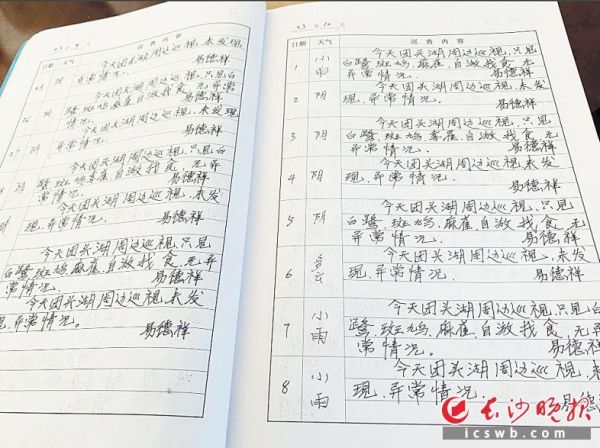 日期 天气 巡查内容
今天团头湖周边巡视,未发现
异常情况。 易德祥
今天团头湖周边巡视,只见白
鹭、斑鸠、麻雀自游找食,无异常
情况。 易德祥
今天团头湖周边巡视,未发现
异常情况。 易德祥
今天团头湖周边巡视,只见白
鹭、斑鸠、喜雀自游找食,无异
常情况。 易德祥
今天团头湖周边巡视,未发
现异常情况。 易德祥
今天团头湖周边巡视,只见
白鹭、斑鸠、麻雀自游找食,无异
常情况。 易德祥
今天团头湖周边巡视,未发
现异常情况。 易德祥
日期 天气 巡查内容
今天团头湖周边巡视,只见
1 小雨 白鹭、斑鸠、麻雀自游找食,无
异常情况。 易德祥
今天团头湖周边巡视,未发
2 阴 现异常情况。 易德祥
今天团头湖周边巡视,只见
3 阴 白鹭、斑鸠、喜雀自游找食,无
异常情况。 易德祥
今天团头湖周边巡视,未发
4 阴 现异常情况。 易德祥
今天团头湖周边巡视,只见
5 阴 白鹭、斑鸠、麻雀自游找食,无
异常情况。 易德祥
今天团头湖周边巡视,未发
6 多云 现异常情况。 易德祥
今天团头湖周边巡视,只见白
7 小雨 鹭、斑鸠、麻雀自游找食,无异
常情况。 易德祥
今天团头湖周边巡视,未
8 小雨 现异常情况。 易德祥
长沙晚报
icswb.com